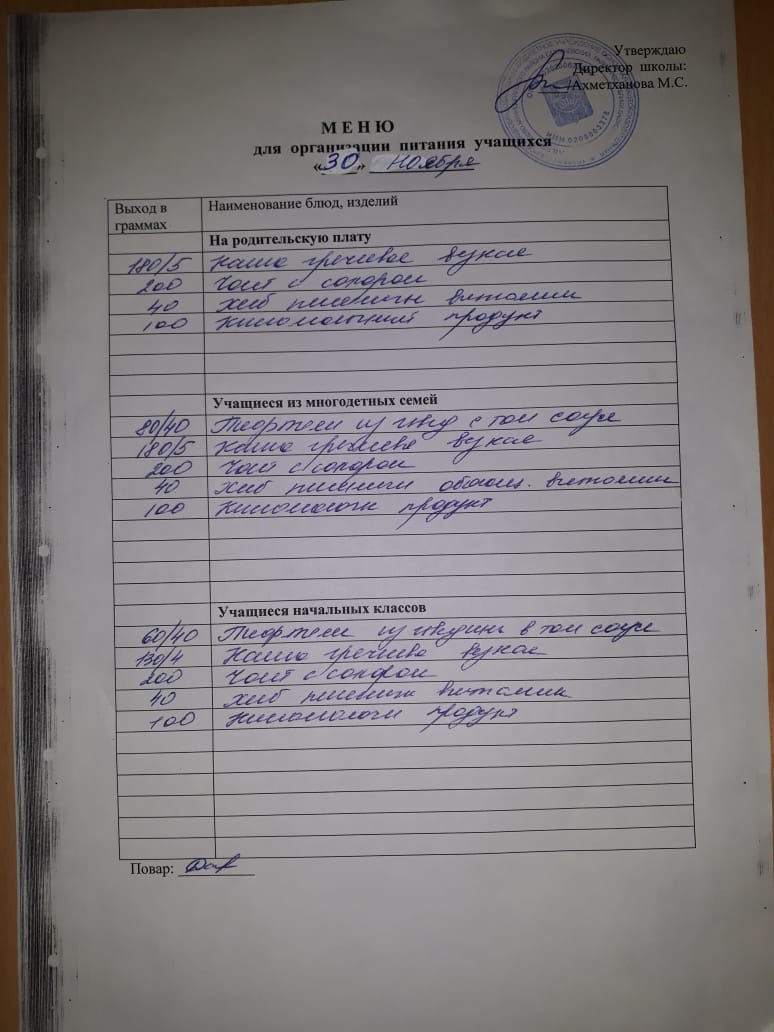 Утверждаю
Директор школы:
/Ахметханова М.С.
ИНН 0209003278
М Е Н Ю
для организации питания учащихся
«30» Ноября
Выход в граммах Наименование блюд, изделий
На родительскую плату
180/5 Каша гречневая вязкая
200 Чай с сахаром
40 Хлеб пшеничн витамин
100 Кисломолочный продукт
Учащиеся из многодетных семей
80/40 Тефтели из говяд с том соусе
180/5 Каша гречнева вязкая
200 Чай с сахаром
40 Хлеб пшеничн обогащ. витамин
100 Кисломолочн продукт
Учащиеся начальных классов
60/40 Тефтели из говядины в том соусе
130/4 Каша гречнева вязкая
200 Чай с сахаром
40 Хлеб пшеничн витамин
100 Кисломолочн продукт
Повар: